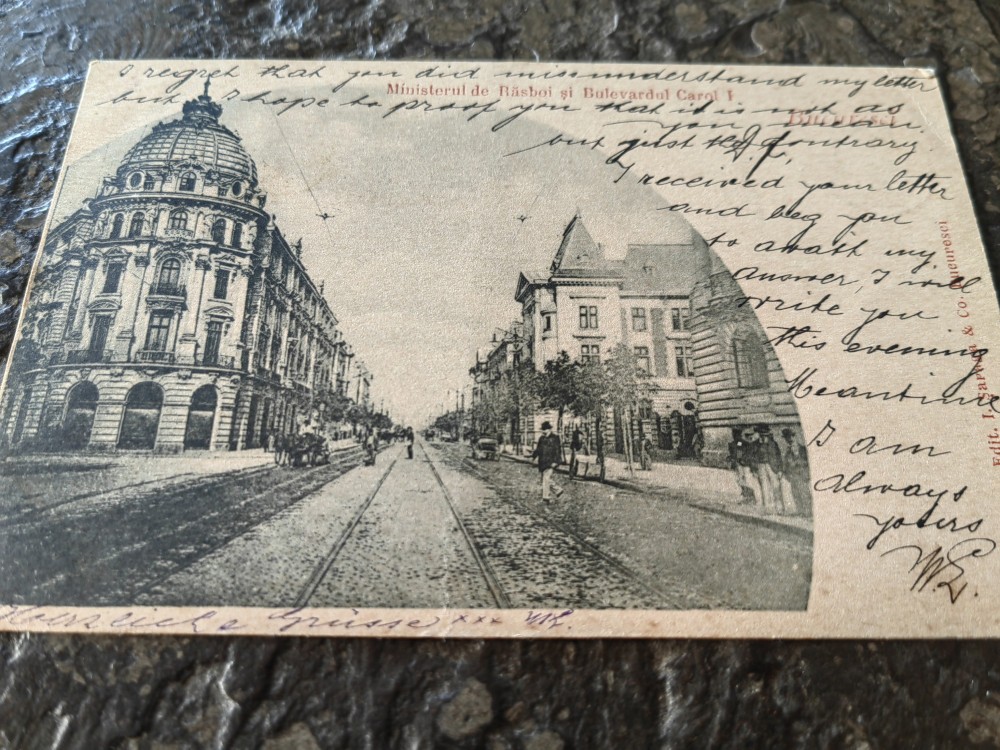 I regret that you did misunderstand my letter
Ministerul de Răsboi și Bulevardul Carol I
but I hope to proof you that it is not as
Bucuresci
you mean
but just the contrary.
I received your letter
and beg you
to await my
answer, I will
write you
this evening
Meantime
I am
always
yours
Edit. & Co. Bucuresci
Herzliche Grüsse xxx